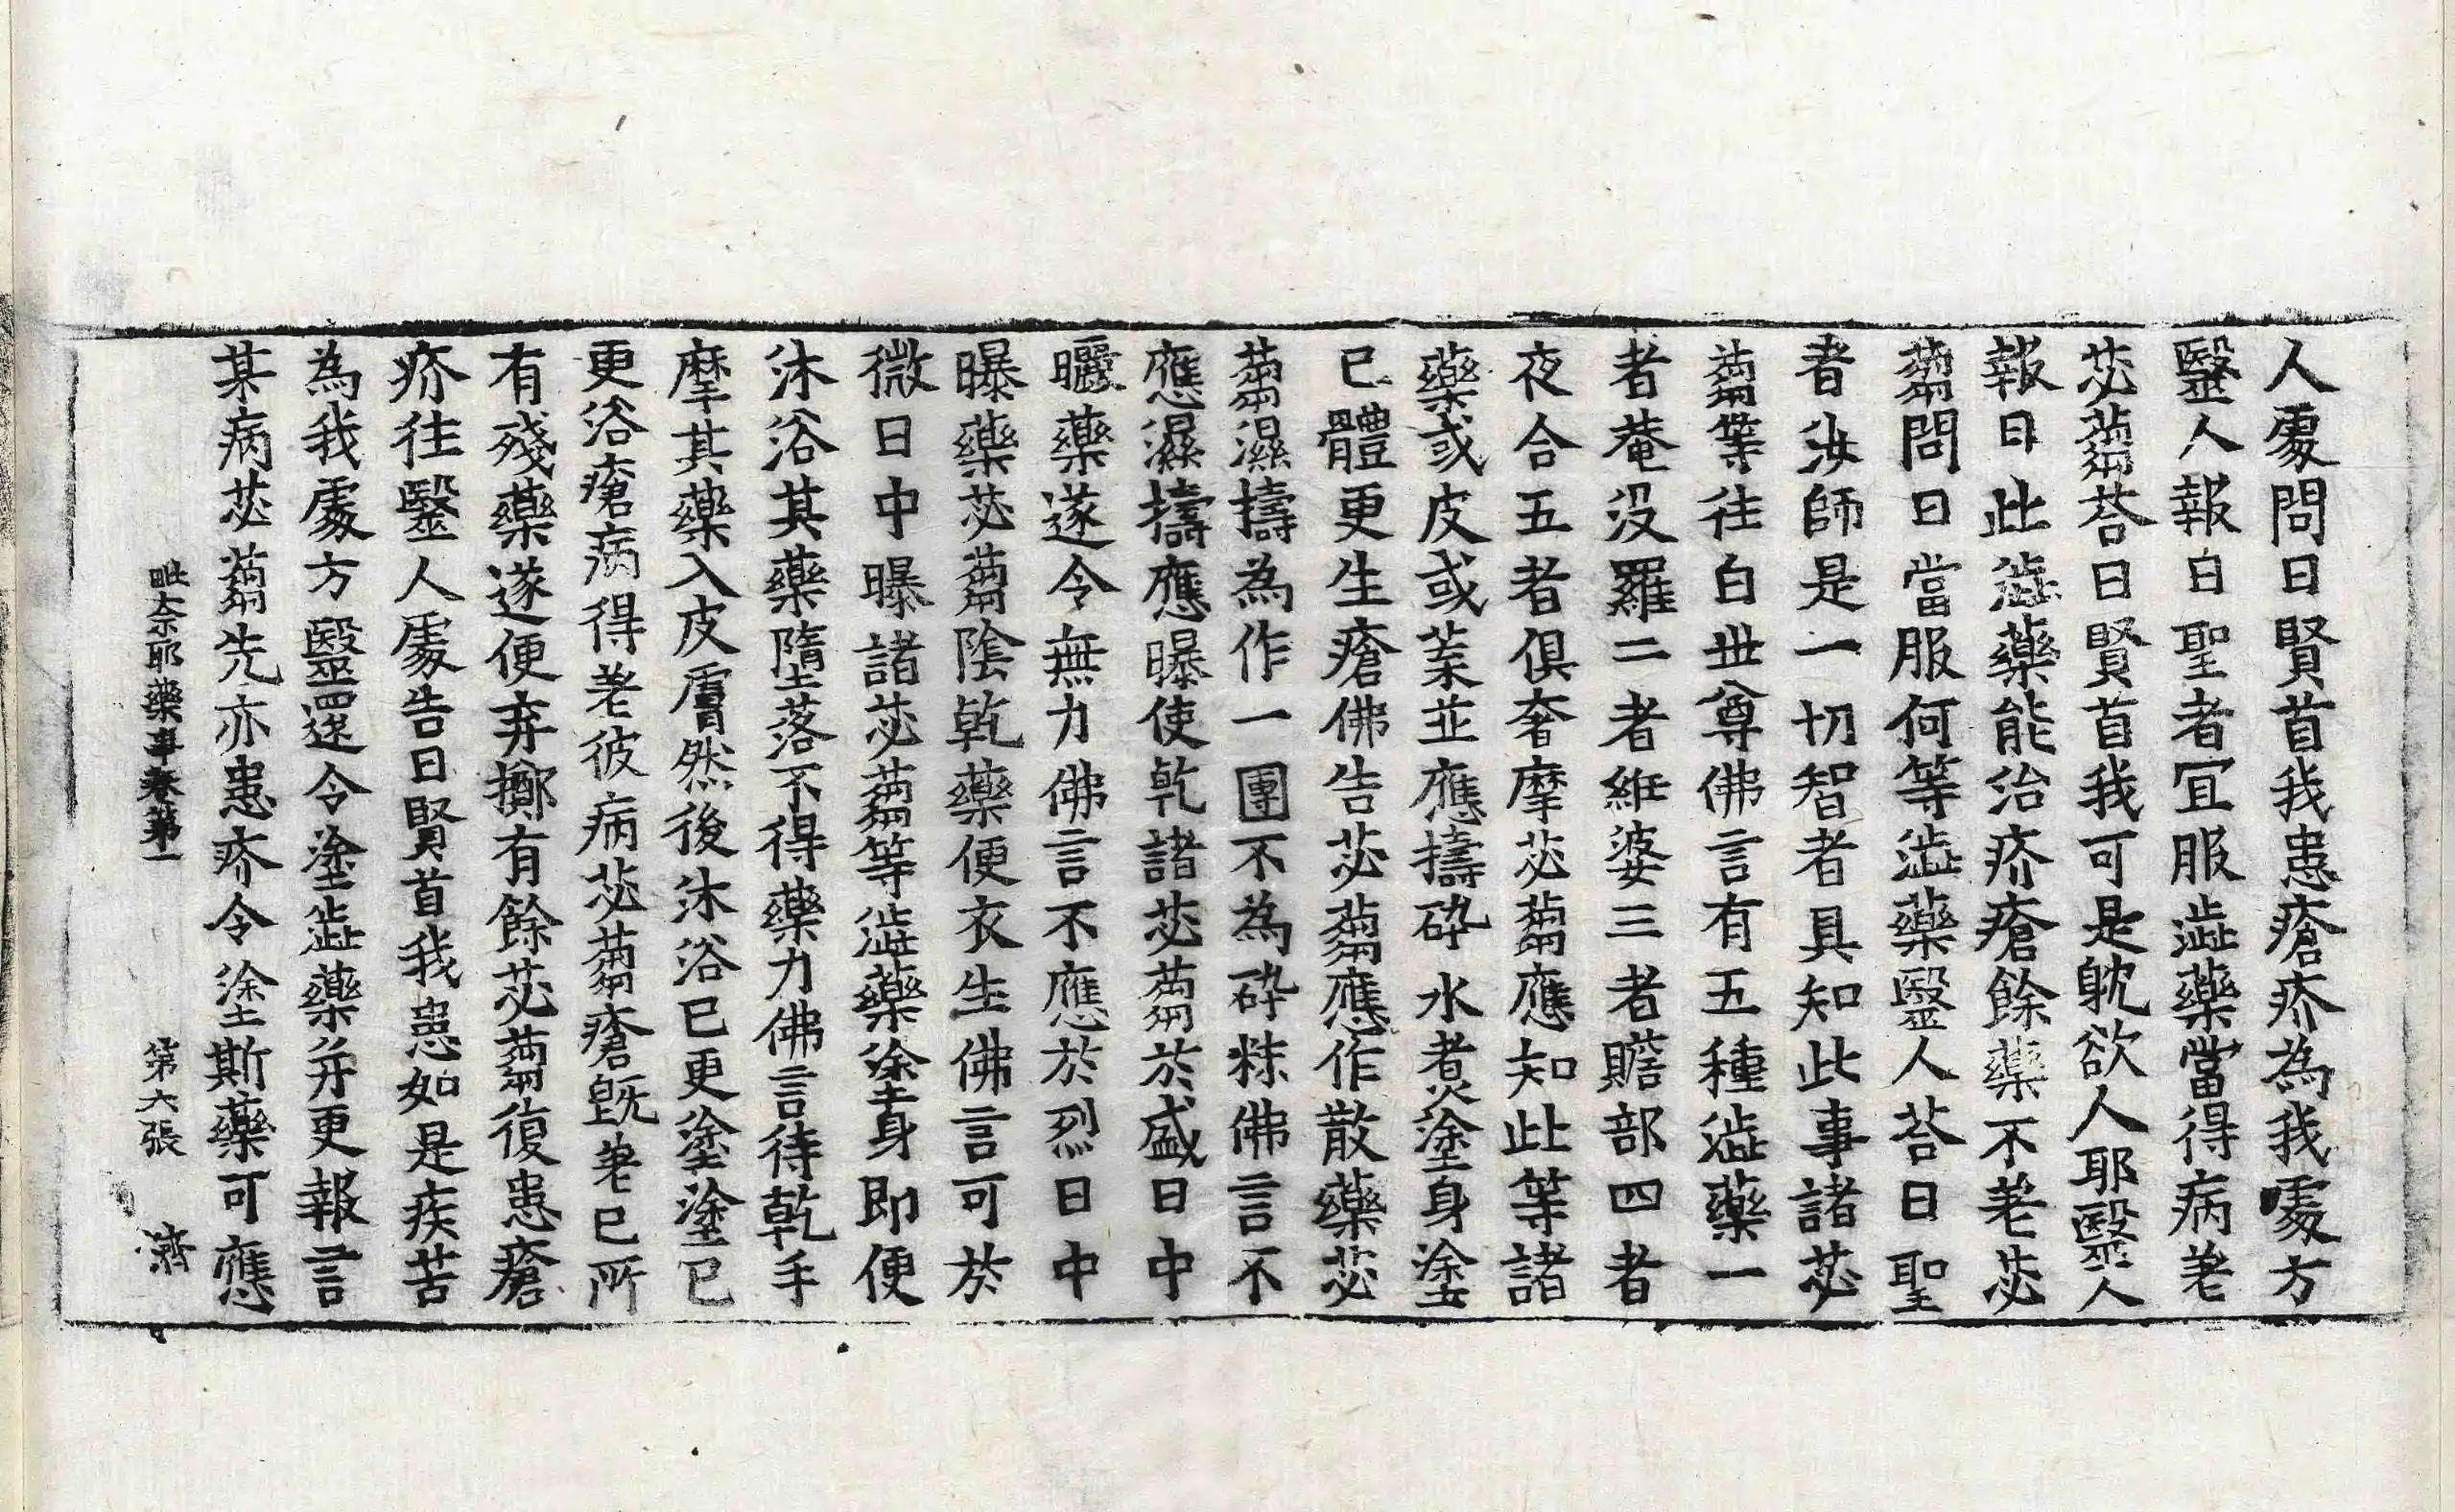 人處問曰賢首我患瘡疥為我處方
醫人報曰聖者冝服澁藥當得病差
苾蒭荅曰賢首我可是躭欲人耶醫人
報曰此澁藥能治疥瘡餘藥不差苾
蒭問曰當服何等澁藥醫人荅曰聖
者汝師是一切智者具知此事諸苾
蒭等往白世尊佛言有五種澁藥一
者菴没羅二者絍婆三者贍部四者
夜合五者俱奢摩苾蒭應知此等諸
藥或皮或葉並應擣碎水煮塗身塗
已體更生瘡佛告苾蒭應作散藥苾
蒭濕擣為作一團不為碎粖佛言不
應濕擣應曝使乾諸苾蒭於盛日中
曬藥遂令無力佛言不應於烈日中
曝藥苾蒭陰乾藥便衣生佛言可於
微日中曝諸苾蒭等澁藥塗身即便
沐浴其藥墮落不得藥力佛言待乾手
摩其藥入皮膚然後沐浴已更塗塗已
更浴瘡病得差彼病苾蒭瘡旣差已所
有殘藥遂便弃擲有餘苾蒭復患瘡
疥往醫人處告曰賢首我患如是疾苦
為我處方醫還令塗澁藥并更報言
某病苾蒭先亦患疥令塗斯藥可應
毗奈耶藥事卷第一　第六張　濟